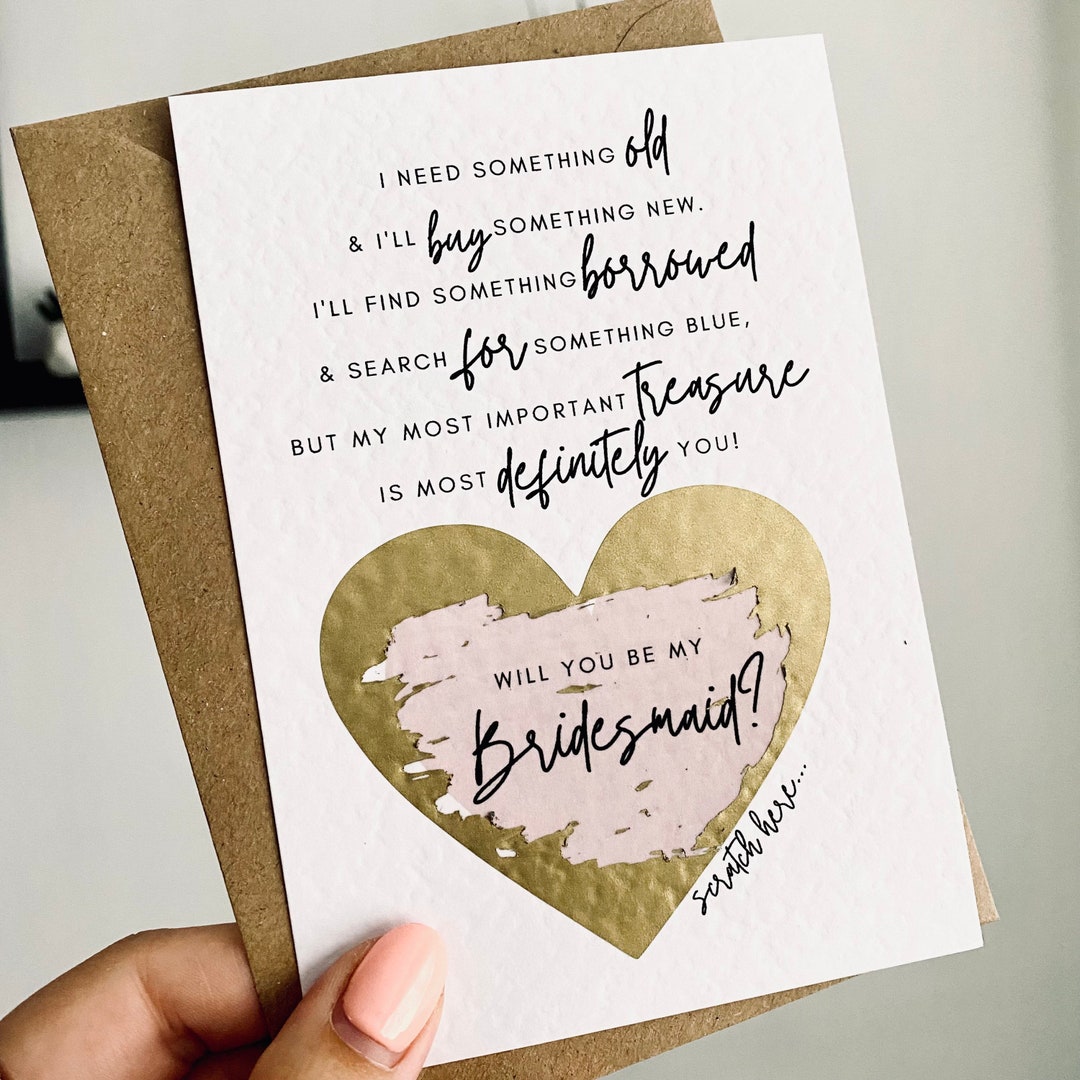 I NEED SOMETHING old
& I'LL buy SOMETHING NEW.
I'LL FIND SOMETHING borrowed
& SEARCH for SOMETHING BLUE,
BUT MY MOST IMPORTANT treasure
IS MOST definitely YOU!
WILL YOU BE MY
Bridesmaid?
scratch here...